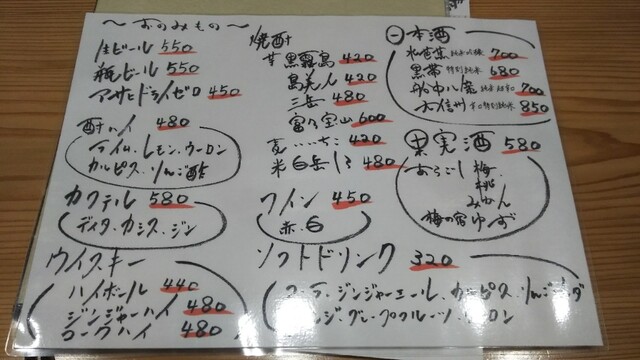 〜おのみもの〜
生ビール 550
瓶ビール 550
アサヒドライゼロ 450
酎ハイ 480
ライム・レモン・ウーロン
カルピス・りんご酢
カクテル 580
ディタ・カシス・ジン
ウイスキー
ハイボール 440
ジンジャーハイ 480
コークハイ 480
焼酎
芋 黒霧島 420
島美人 420
三岳 480
富乃宝山 600
麦 いいちこ 420
米 白岳しろ 480
ワイン 450
赤・白
ソフトドリンク 320
コーラ・ジンジャーエール・カルピス・りんご
グレープフルーツ・ウーロン
日本酒
700
黒帯 特別純米 680
船中八策 純米 700
水信州 特別純米 850
果実酒 580
あらごし 梅
桃
みかん
梅の宿 ゆず